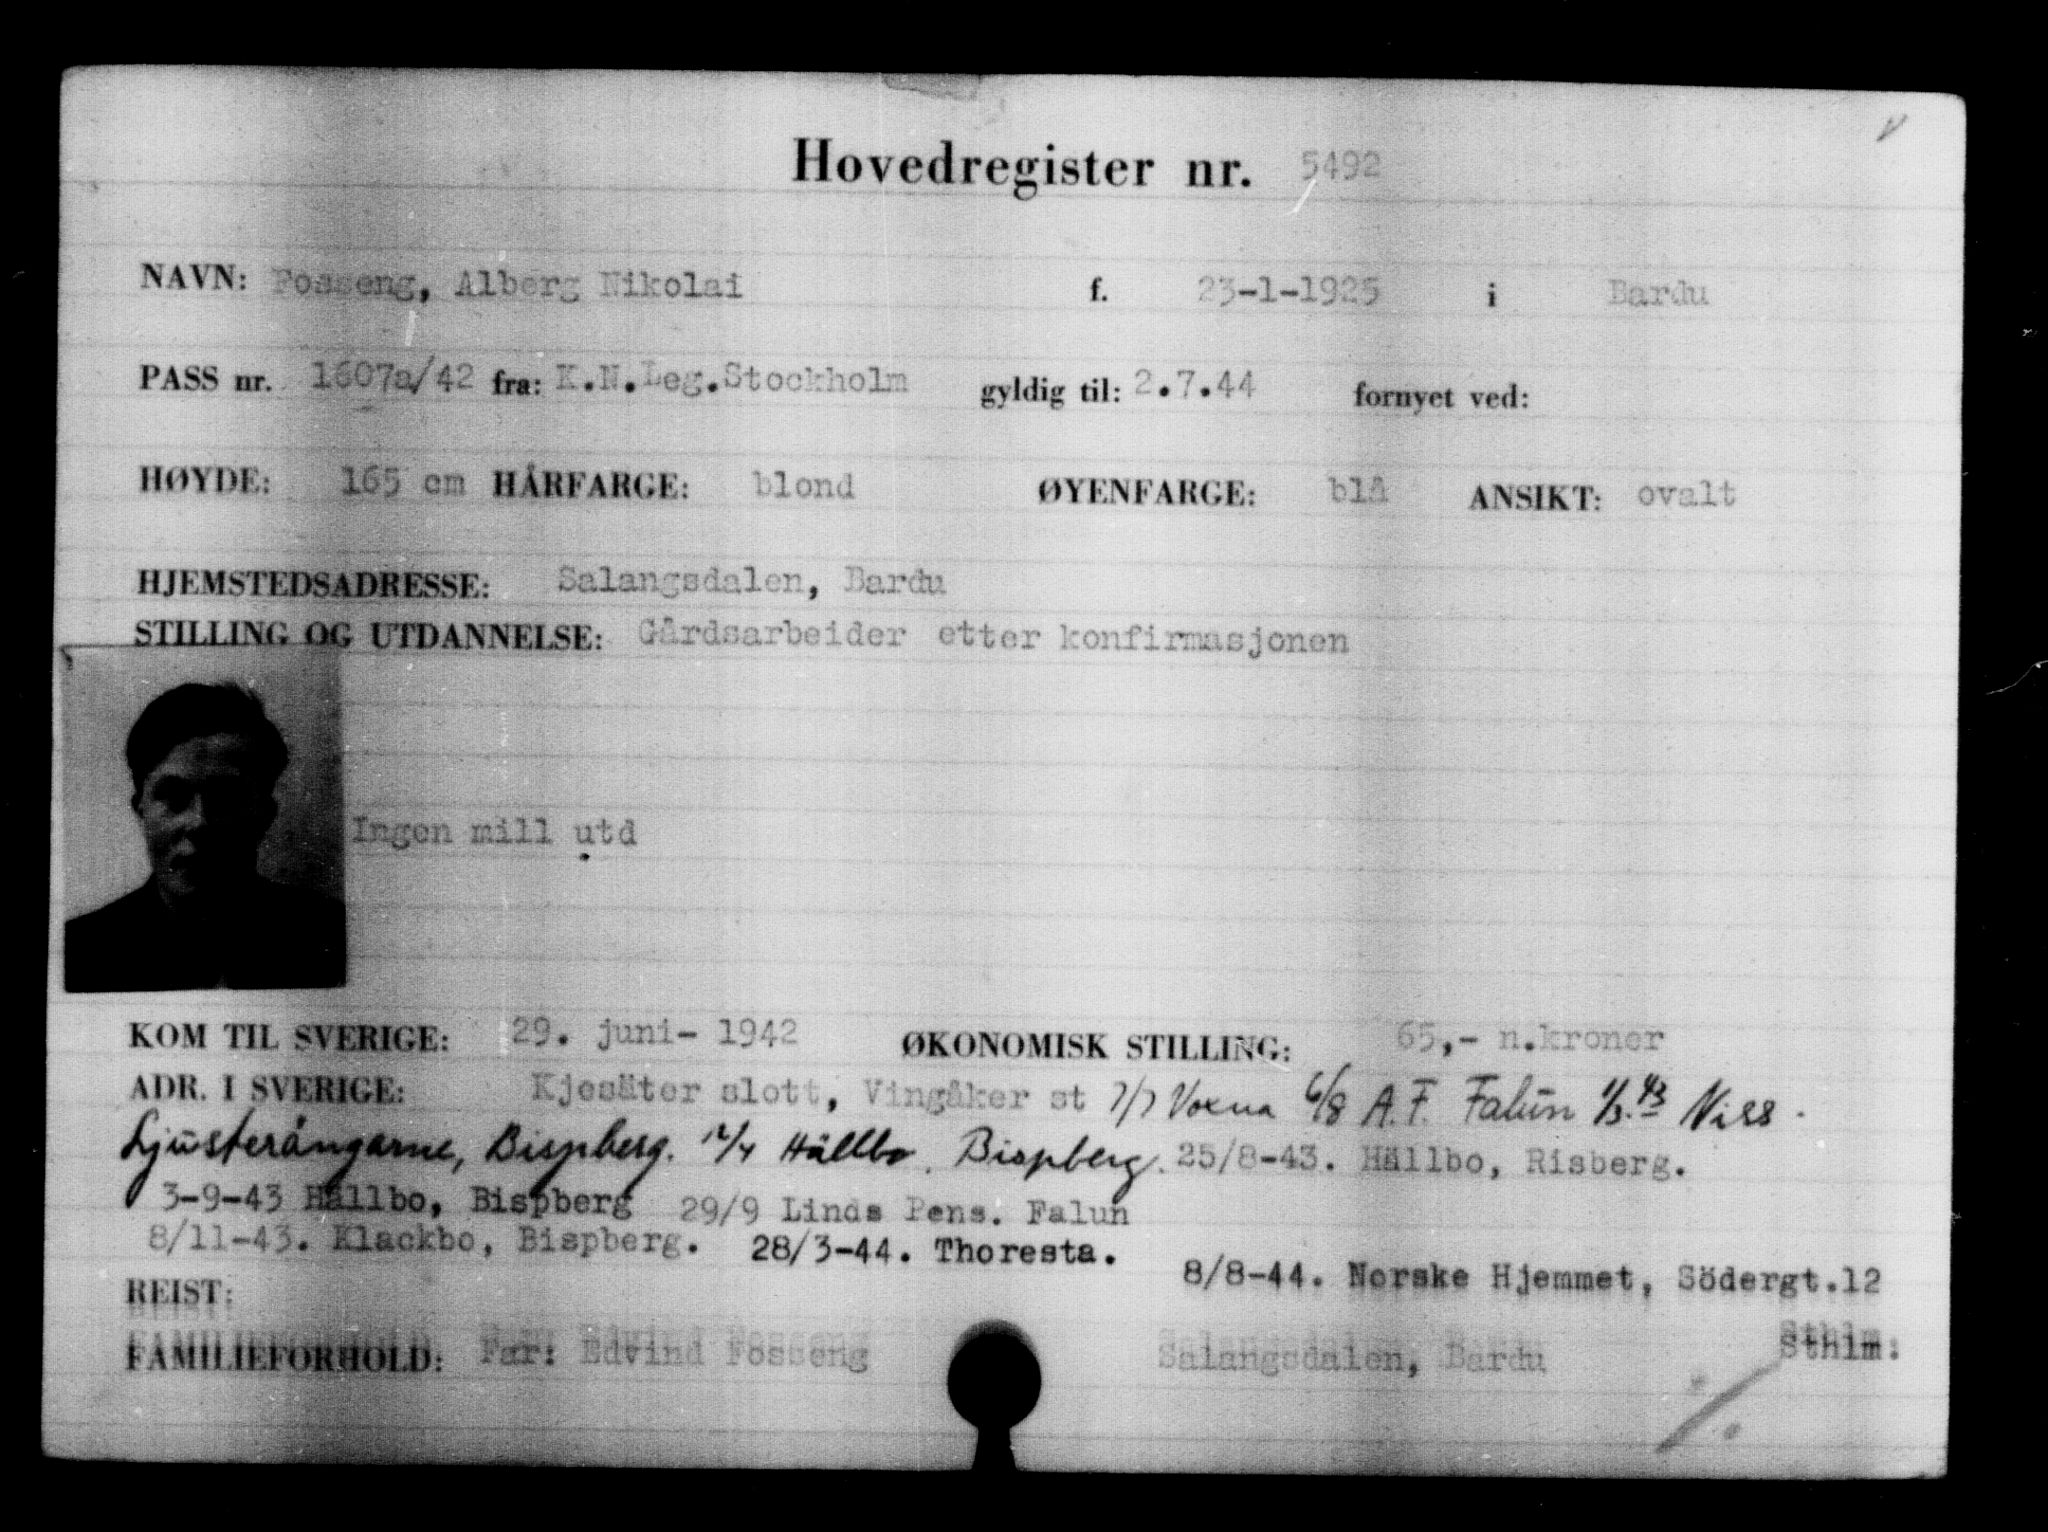 Hovedregister nr. 5492
NAVN: Fosseng, Alberg Nikolai f. 23-1-1925 i Bardu
PASS nr. 1607a/42 fra: K.N.Leg.Stockholm gyldig til: 2.7.44 fornyet ved:
HØYDE: 165 cm HÅRFARGE: blond ØYENFARGE: blå ANSIKT: ovalt
HJEMSTEDSADRESSE: Salangsdalen, Bardu
STILLING OG UTDANNELSE: Gårdsarbeider etter konfirmasjonen
Ingen mill utd
KOM TIL SVERIGE: 29. juni- 1942 ØKONOMISK STILLING: 65,- n.kroner
ADR. I SVERIGE: Kjesäter slott, Vingåker st 7/7 Voxna 6/8 A.F. Falun 1/3.43 Niss.
Ljusterängarne, Bispberg. 12/4 Hällbo. Bispberg. 25/8-43. Hällbo, Risberg.
3-9-43 Hällbo, Bispberg 29/9 Linds Pens. Falun
8/11-43. Klackbo, Bispberg. 28/3-44. Thoresta.
8/8-44. Norske Hjemmet, Södergt.12
REIST:
Sthlm.
FAMILIEFORHOLD: Far: Edvind Fosseng Salangsdalen, Bardu